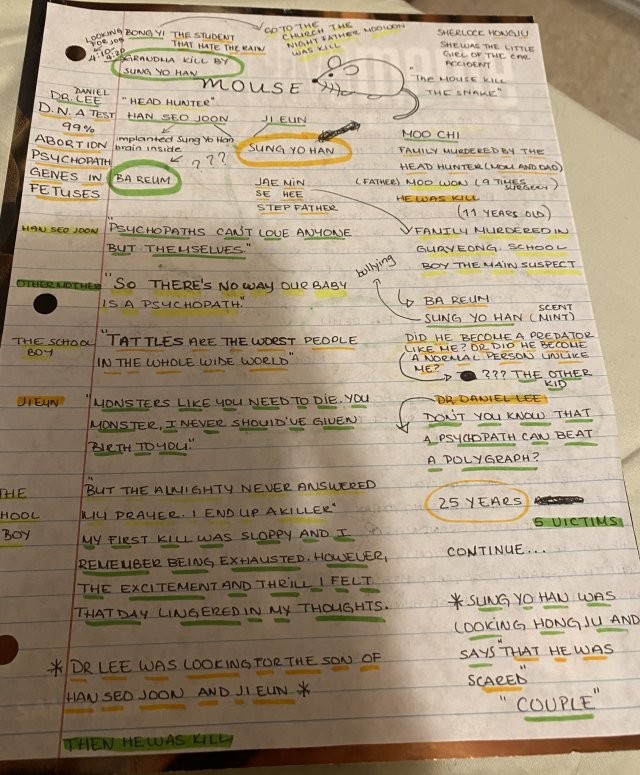 LOOKING FOR JOB
4.10.
BONG YI THE STUDENT
THAT HATE THE RAIN
GO TO THE
CHURCH THE
NIGHT FATHER MOO WON
WAS KILL
GRANDMA KILL BY
SUNG YO HAN
SHERLOCK HONGJU
SHE WAS THE LITTLE
GIRL OF THE CAR
ACCIDENT
MOUSE
"THE MOUSE KILL
THE SNAKE"
DANIEL
DR. LEE
D.N.A TEST
99%
ABORTION
PSYCHOPATH
GENES IN
FETUSES
"HEAD HUNTER"
HAN SEO JOON
JI EUN
implanted Sung Yo Han
brain inside
SUNG YO HAN
???
BA REUM
JAE MIN
SE HEE
STEP FATHER
MOO CHI
FAMILY MURDERED BY THE
HEAD HUNTER (MOM AND DAD)
(FATHER) MOO WON (9 TIMES
HE WAS KILL
(11 YEARS OLD)
FAMILY MURDERED IN
GURYEONG. SCHOOL
BOY THE MAIN SUSPECT
bullying
BA REUM
SUNG YO HAN SCENT
(MINT)
HAN SEO JOON
"PSYCHOPATHS CAN'T LOVE ANYONE
BUT THEMSELVES."
OTHER MOTHER
"SO THERE'S NO WAY OUR BABY
IS A PSYCHOPATH."
THE SCHOOL
BOY
"TATTLES ARE THE WORST PEOPLE
IN THE WHOLE WIDE WORLD"
DID HE BECOME A PREDATOR
LIKE ME? OR DID HE BECOME
A NORMAL PERSON UNLIKE
ME?
??? THE OTHER
KID
JI EUN
"MONSTERS LIKE YOU NEED TO DIE. YOU
MONSTER, I NEVER SHOULD'VE GIVEN
BIRTH TO YOU."
DR. DANIEL LEE
DON'T YOU KNOW THAT
A PSYCHOPATH CAN BEAT
A POLYGRAPH?
THE
HOOL
BOY
"BUT THE ALMIGHTY NEVER ANSWERED
MY PRAYER. I END UP A KILLER"
MY FIRST KILL WAS SLOPPY AND I
REMEMBER BEING EXHAUSTED. HOWEVER,
THE EXCITEMENT AND THRILL I FELT
THAT DAY LINGERED IN MY THOUGHTS.
25 YEARS
5 VICTIMS
CONTINUE...
* SUNG YO HAN WAS
LOOKING HONGJU AND
SAYS "THAT HE WAS
SCARED"
"COUPLE"
* DR LEE WAS LOOKING FOR THE SON OF
HAN SEO JOON AND JI EUN *
THEN HE WAS KILL